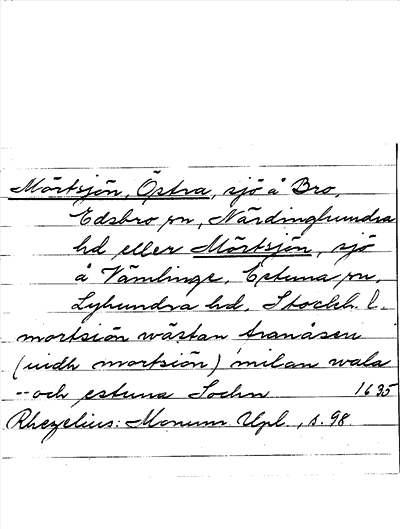 Mörtsjön, Östra, sjö å Bro,
Edsbro sn, Närdinghundra
hd eller Mörtsjön, sjö
å Vämlinge, Estuna sn,
Lyhundra hd, Stockh. l.
mortsiön wästan franåsen
(widh mortsiön) milan wala
-- och estuna Sochn 1635
Rhezelius: Monum Upl., s. 98